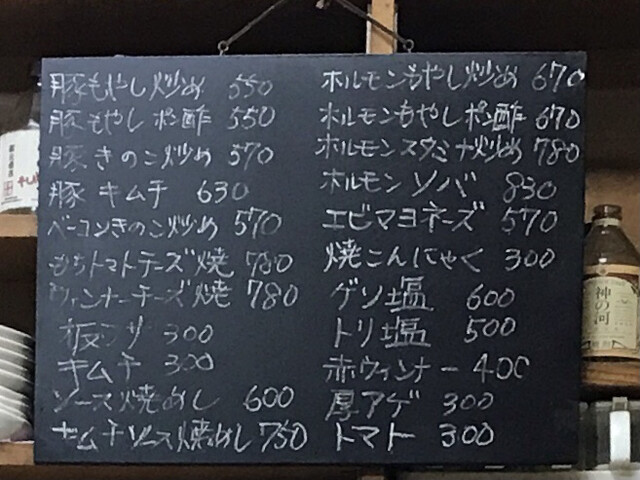 豚もやし炒め 550
豚もやしポン酢 550
豚きのこ炒め 570
豚キムチ 630
ベーコンきのこ炒め 570
もちトマトチーズ焼 780
ウィンナーチーズ焼 780
板ワサ 300
キムチ 300
ソース焼めし 600
キムチソース焼めし 750
ホルモンもやし炒め 670
ホルモンもやしポン酢 670
ホルモンスタミナ炒め 780
ホルモンソバ 830
エビマヨネーズ 570
焼こんにゃく 300
ゲソ塩 600
トリ塩 500
赤ウィンナー 400
厚アゲ 300
トマト 300
神の河